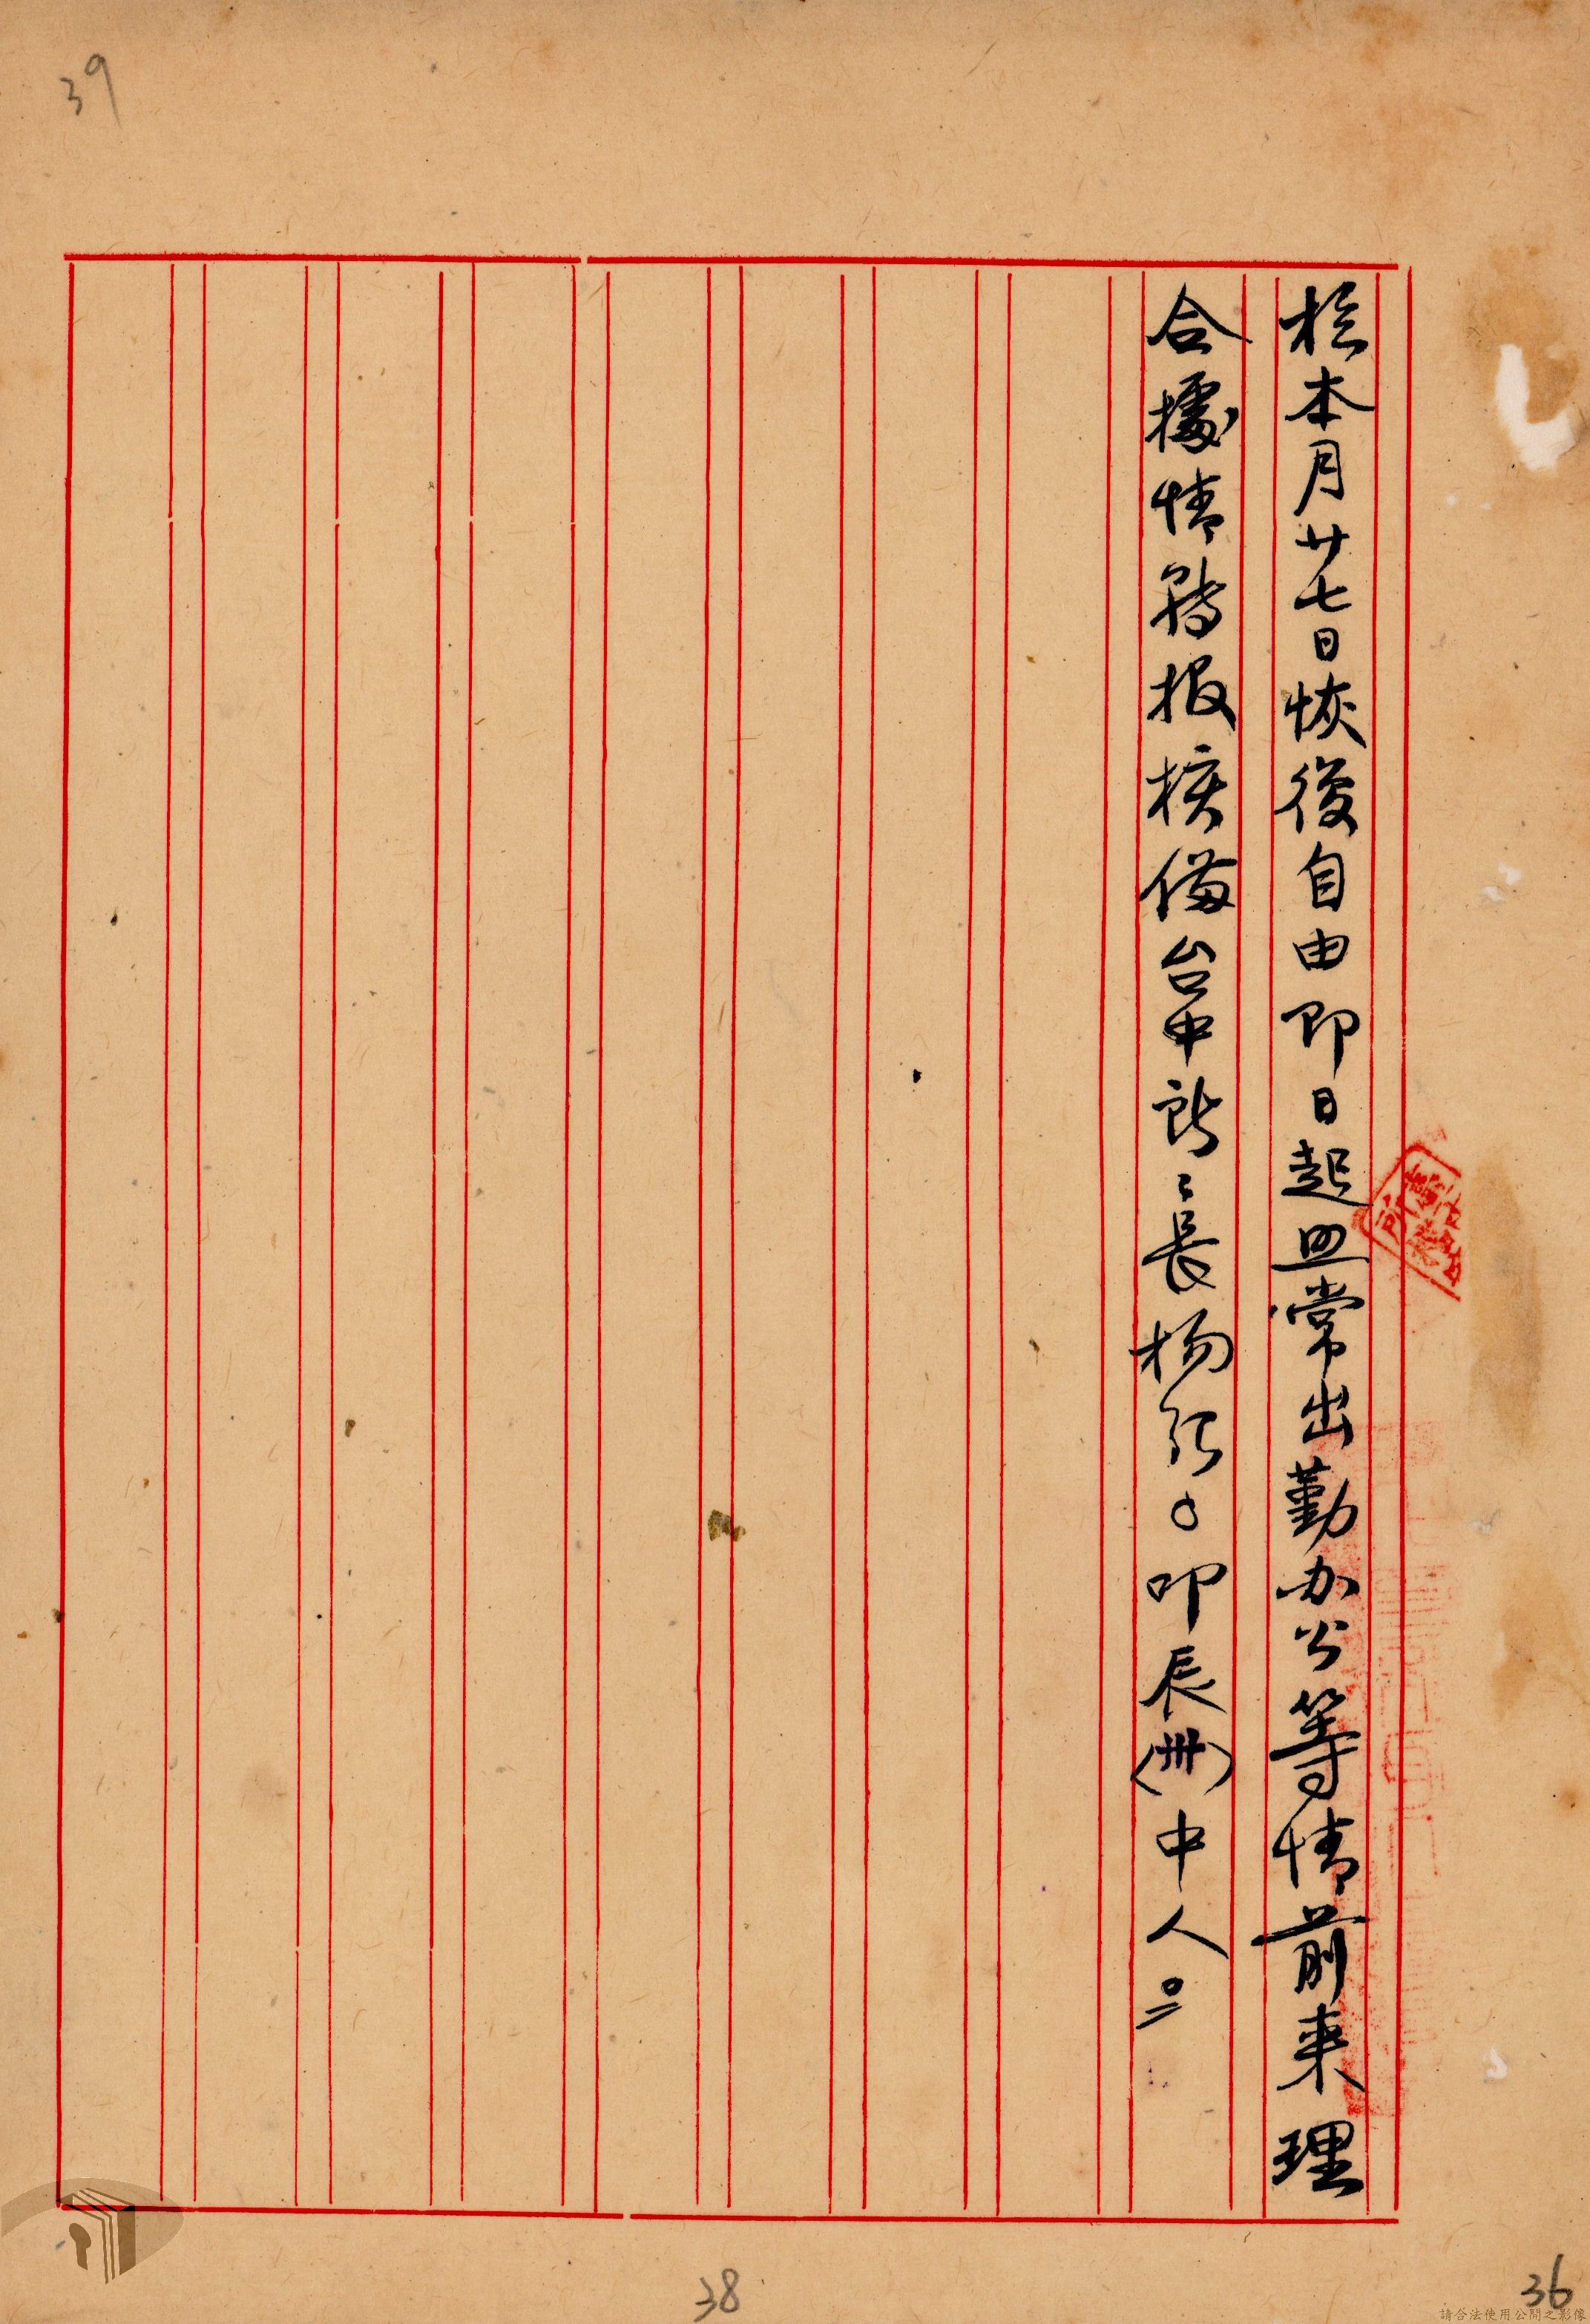 39
於本月廿七日恢復自由即日起照常出勤办公等情前来理
合據情轉报核備台中所〻長杨
叩辰(卅)中人
38
36
請合法使用公開之影像